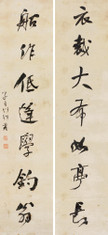 衣裁大布如亭長
船作低篷學釣翁